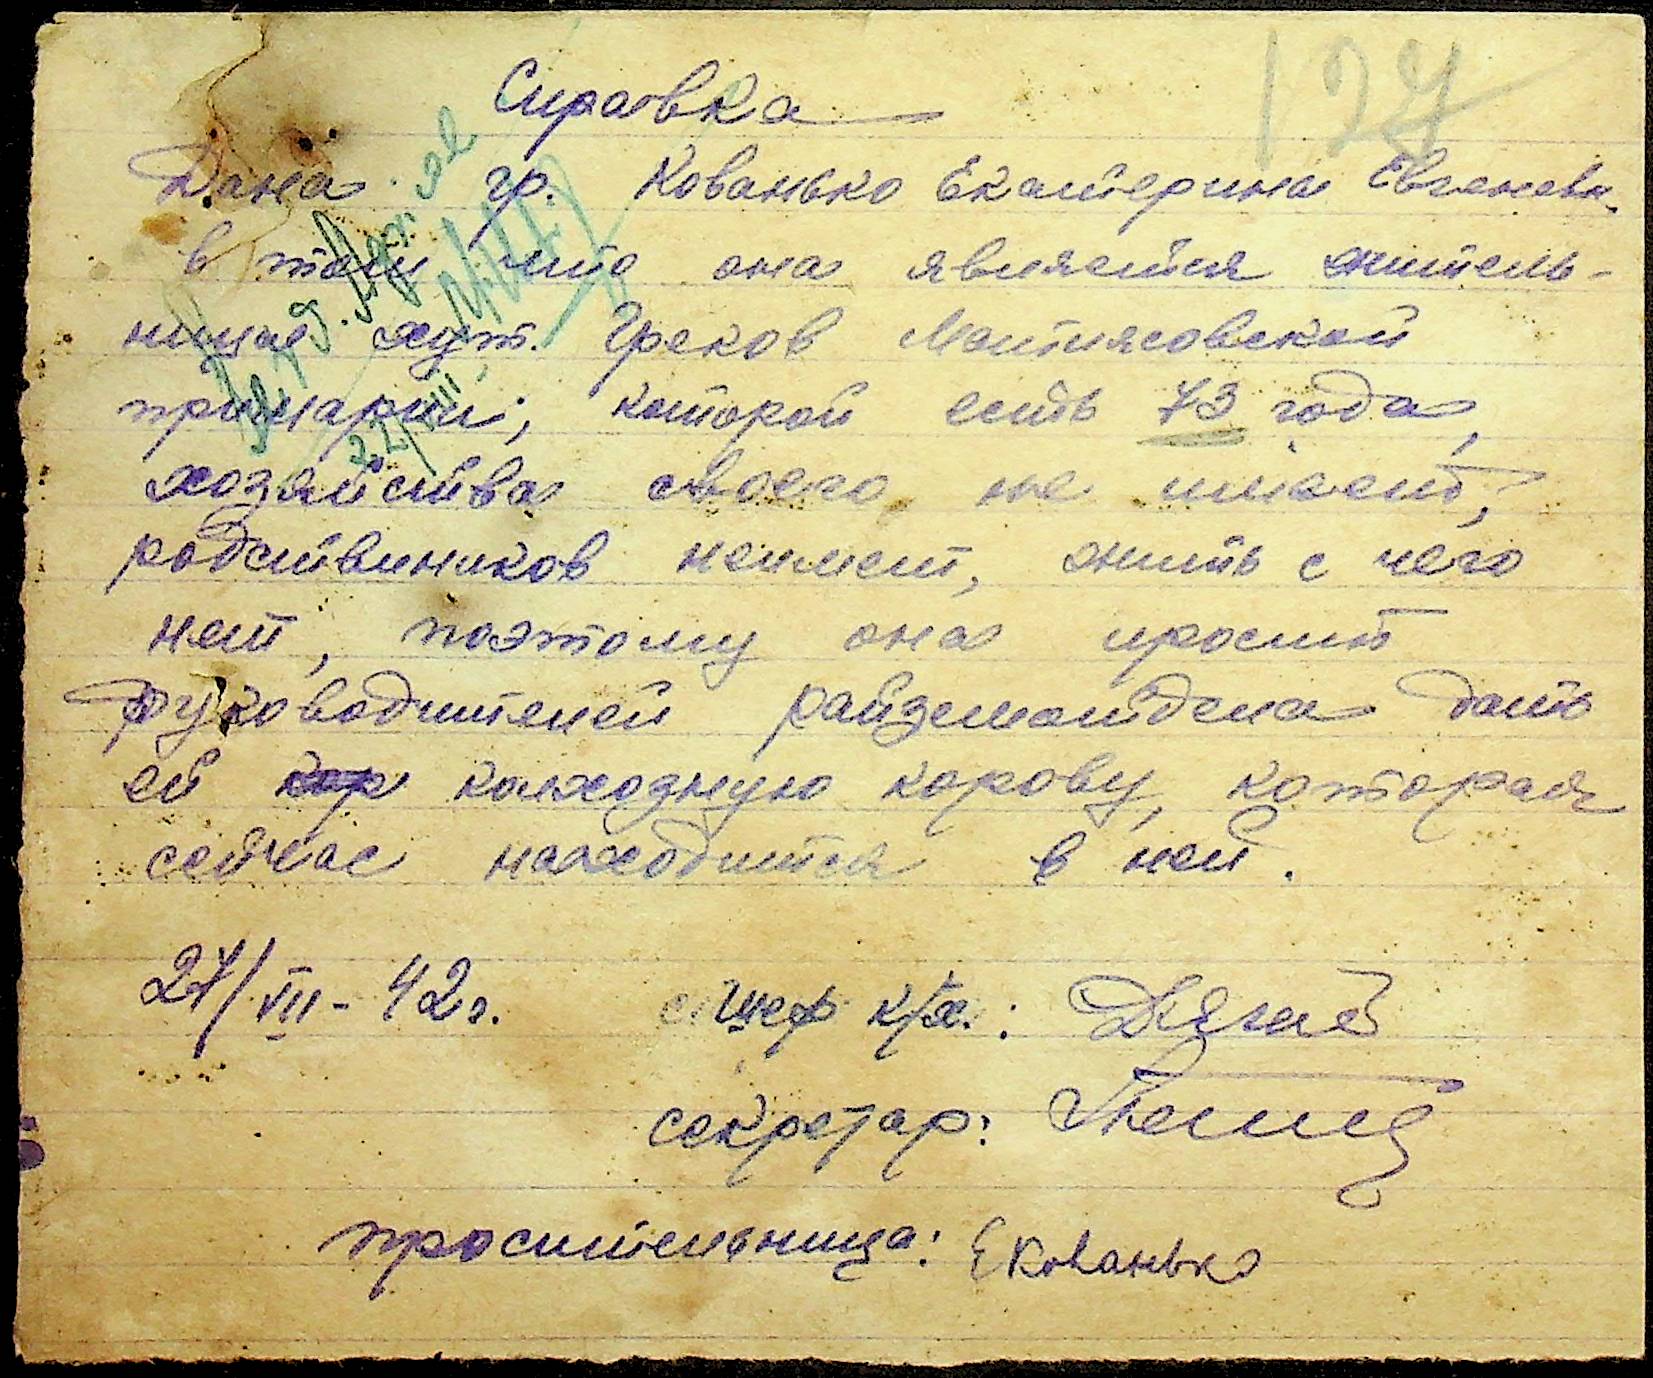 127
Справка
Дана гр. Кованько Екатерина Евгеневн.
в том что она является житель-
ницая хут. Греков Матиясовской
примарии, которой есть 73 года,
хозяйства своего не имеет,
родствиников неимеет, жить с чего
нет, поэтому она просит
руководителей райземотдела дать
ей кор колхозную корову, которая
сейчас находится в ней.
27/VIII - 42г. шеф к/х.:
секретар:
просительница: Е Кованько